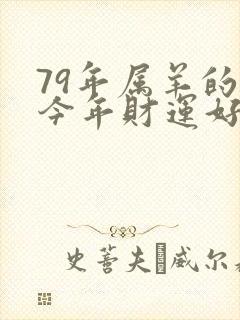 79年属羊的
今年财运好
史蒂夫 威尔